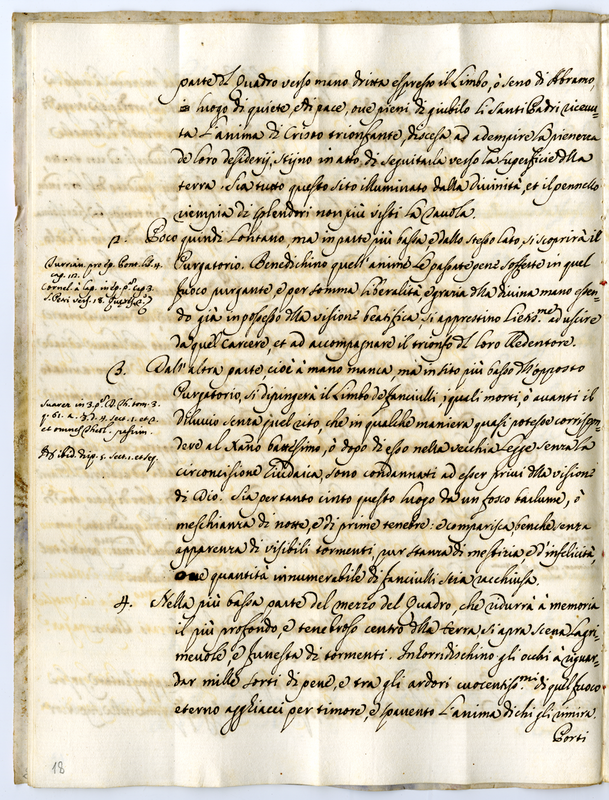 parte del Quadro verso mano dritta espresso il Limbo, ò seno di Abramo,
luogo di quiete, e di pace, oue pieni di giubilo li Santi Padri riceuu=
ta l'anima di Cristo trionfante, discesa ad adempire la pienezza
de loro desiderij, stijno in atto, di seguitarla verso la superficie della
terra. Sia tutto questo sito illuminato dalla Diuinità, et il pennello
riempia di splendori non più visti la Tauola.
2. Poco quindi lontano, ma in parte più bassa e dallo stesso lato, si scoprirà il
Purgatorio. Benedichino quell'anime le passate pene sofferte in quel
fuoco purgante, e per somma liberalità e grazia della diuina mano essen=
do già in possesso della visione beatifica, si apprestino ad uscire
da quel carcere, et ad accompagnare il trionfo del loro Redentore.
3. Dall'altra parte cioè à mano manca, ma in sito più basso dell'opposto
Purgatorio, si dipingerà il Limbo de fanciulli, i quali morti, ò auanti il
diluuio senza quel rito, che in qualche maniera quasi potesse corrispon=
dere al battesimo, ò dopo di esso nella vecchia Legge senza la
circoncisione Giudaica, sono condannati ad esser priui della visione
di Dio. Sia per tanto cinto questo luogo da un fosco barlume, ò
meschianza di notte, e di prime tenebre: e comparisca, benche senza
apparenza di visibili tormenti, pur stanza di mestizia e d'infelicità,
oue quantità innumerabile di fanciulli stia racchiusa.
4. Nella più bassa parte del mezzo del Quadro, che ridurrà à memoria
il più profondo, e tenebroso centro della terra, si apra scena lagri=
meuole, e funesta di tormenti. Inhorridischino gli occhi à riguar=
dar mille sorti di pene, e tra gli ardori cuocentiss.mi di quel fuoco
eterno agghiacci per timore, e spauento l'anima di chi gli rimira.
Porti
cap.
Suarez in 3. p. tom. 3.
18